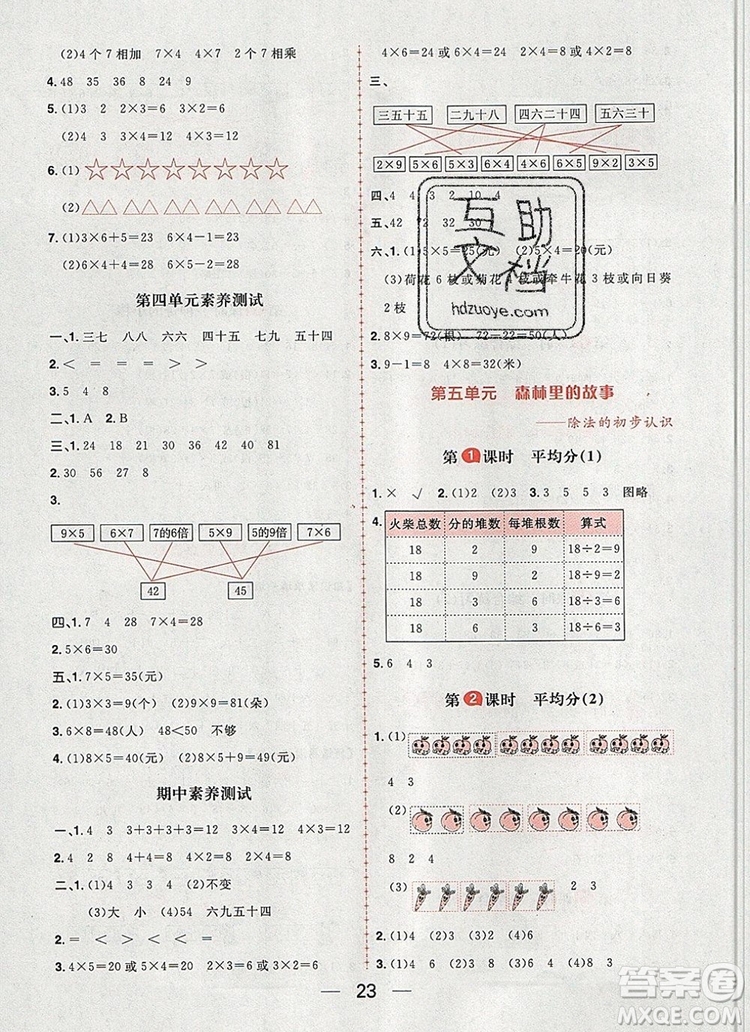 (2)4 个 7 相加 7×4 4×7 2 个 7 相乘
4. 48 35 36 8 24 9
5. (1)3 2 2×3=6 3×2=6
(2)4 3 3×4=12 4×3=12
6. (1)☆☆☆☆☆☆☆☆☆
(2)△△△△△△△△△△△△
7. (1)3×6+5=23 4×6-1=23
(2)4×4+2=18 3×6=18
第四单元素养测试
一、1. 三七 八八 六六 四十五 七九 五十四
2. < = = > >
3. 5 4 8
二、1. A 2. B
三、1. 24 30 24 18 21 81
2. 30 56 27 28
3.
9×5 6×7 7的6倍 5×9 5的9倍 7×6
42 45
四、1. 7 4 28 7×4=28
2. 5×6=30
五、1. 7×5=35(元)
2. (1)3×3=9(个) (2)9×9=81(朵)
3. 6×8=48(人) 48<50 不够
4. (1)8×5=40(元) (2)8×5+9=49(元)
期中素养测试
一、1. 4 3 3+3+3+3=12 3×4=12 4×3=12
2. 4 2 8 4+4=8 4×2=8 2×4=8
二、1. (1)4 3 3 4 (2)不变
(3)大 小 (4)54 六九五十四
2. = < > < < =
3. 4×5=20 或 5×4=20 2×3=6 或 3×2=6
4×6=24 或 6×4=24 4×2=8 或 2×4=8
三、
三五十五 二九十八 四六二十四 五六三十
2×9 5×3 6×4 5×6 9×2 3×5
四、4 4 3 2 10 4
五、42 72 30 0
六、1. (1)6×5=30(元) (2)5×4=20(元)
(3)荷花 6 枝或菊花 枝或牵牛花 3 枝或向日葵
2 枝
2. 8×9=72(人) 72-22=50(人)
3. 9-1=8 4×8=32(米)
互助
文档
hdzuoye.com
第五单元 森林里的故事
——除法的初步认识
第1课时 平均分(1)
1. × √ 2. (1)2 (2)3 3. 3 5 5 3 图略
4.
火柴总数 分的堆数 每堆根数 算式
18 2 9 18÷2=9
18 9 2 18÷9=2
18 3 6 18÷3=6
18 6 3 18÷6=3
5. 6 4 3
第2课时 平均分(2)
1. (1)
4 3
(2)
8 2 4
(3) 2 3
2. (1)4 (2)3 (3)2 (4)6
3. (1)4 (2)6
23
答案圈
MXQE.COM